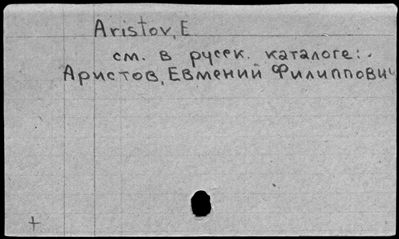 Aristov, E.
см. в русск. каталоге:
Аристов, Евмений Филиппович